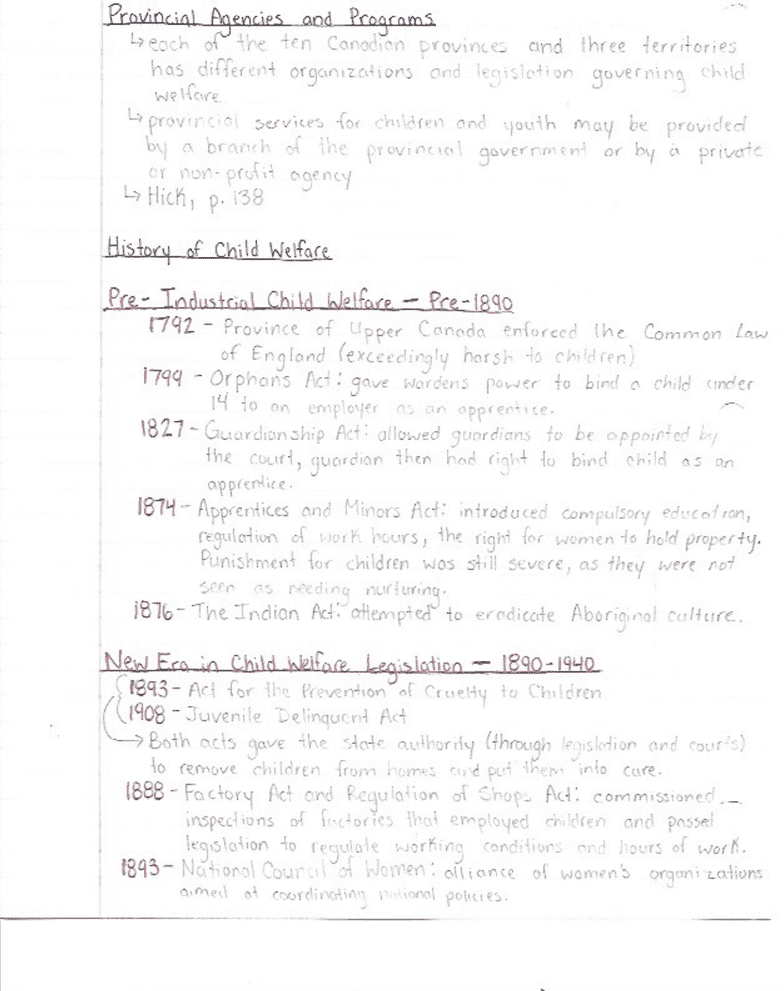 Provincial Agencies and Programs
↳ each of the ten Canadian provinces and three territories
has different organizations and legislation governing child
welfare.
↳ provincial services for children and youth may be provided
by a branch of the provincial government or by a private
or non-profit agency
↳ Hick, p. 138
History of Child Welfare
Pre-Industrial Child Welfare — Pre-1890
1792 - Province of Upper Canada enforced the Common Law
of England (exceedingly harsh to children)
1799 - Orphans Act: gave wardens power to bind a child under
14 to an employer as an apprentice.
1827 - Guardianship Act: allowed guardians to be appointed by
the court, guardian then had right to bind child as an
apprentice.
1874 - Apprentices and Minors Act: introduced compulsory education,
regulation of work hours, the right for women to hold property.
Punishment for children was still severe, as they were not
seen as needing nurturing.
1876 - The Indian Act: attempted to eradicate Aboriginal culture.
New Era in Child Welfare Legislation — 1890-1940
1893 - Act for the Prevention of Cruelty to Children
1908 - Juvenile Delinquent Act
→ Both acts gave the state authority (through legislation and courts)
to remove children from homes and put them into care.
1888 - Factory Act and Regulation of Shops Act: commissioned
inspections of factories that employed children and passed
legislation to regulate working conditions and hours of work.
1893 - National Council of Women: alliance of women's organizations
aimed at coordinating national policies.